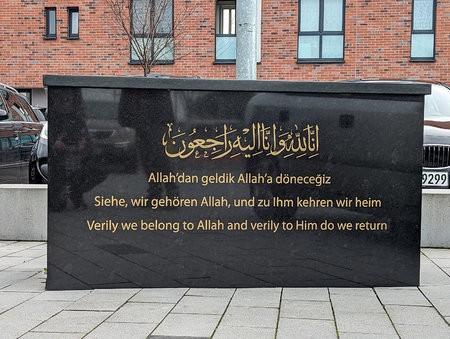 إنا لله وإنا إليه راجعون
Allah'dan geldik Allah'a döneceğiz
Siehe, wir gehören Allah, und zu Ihm kehren wir heim
Verily we belong to Allah and verily to Him do we return
9299